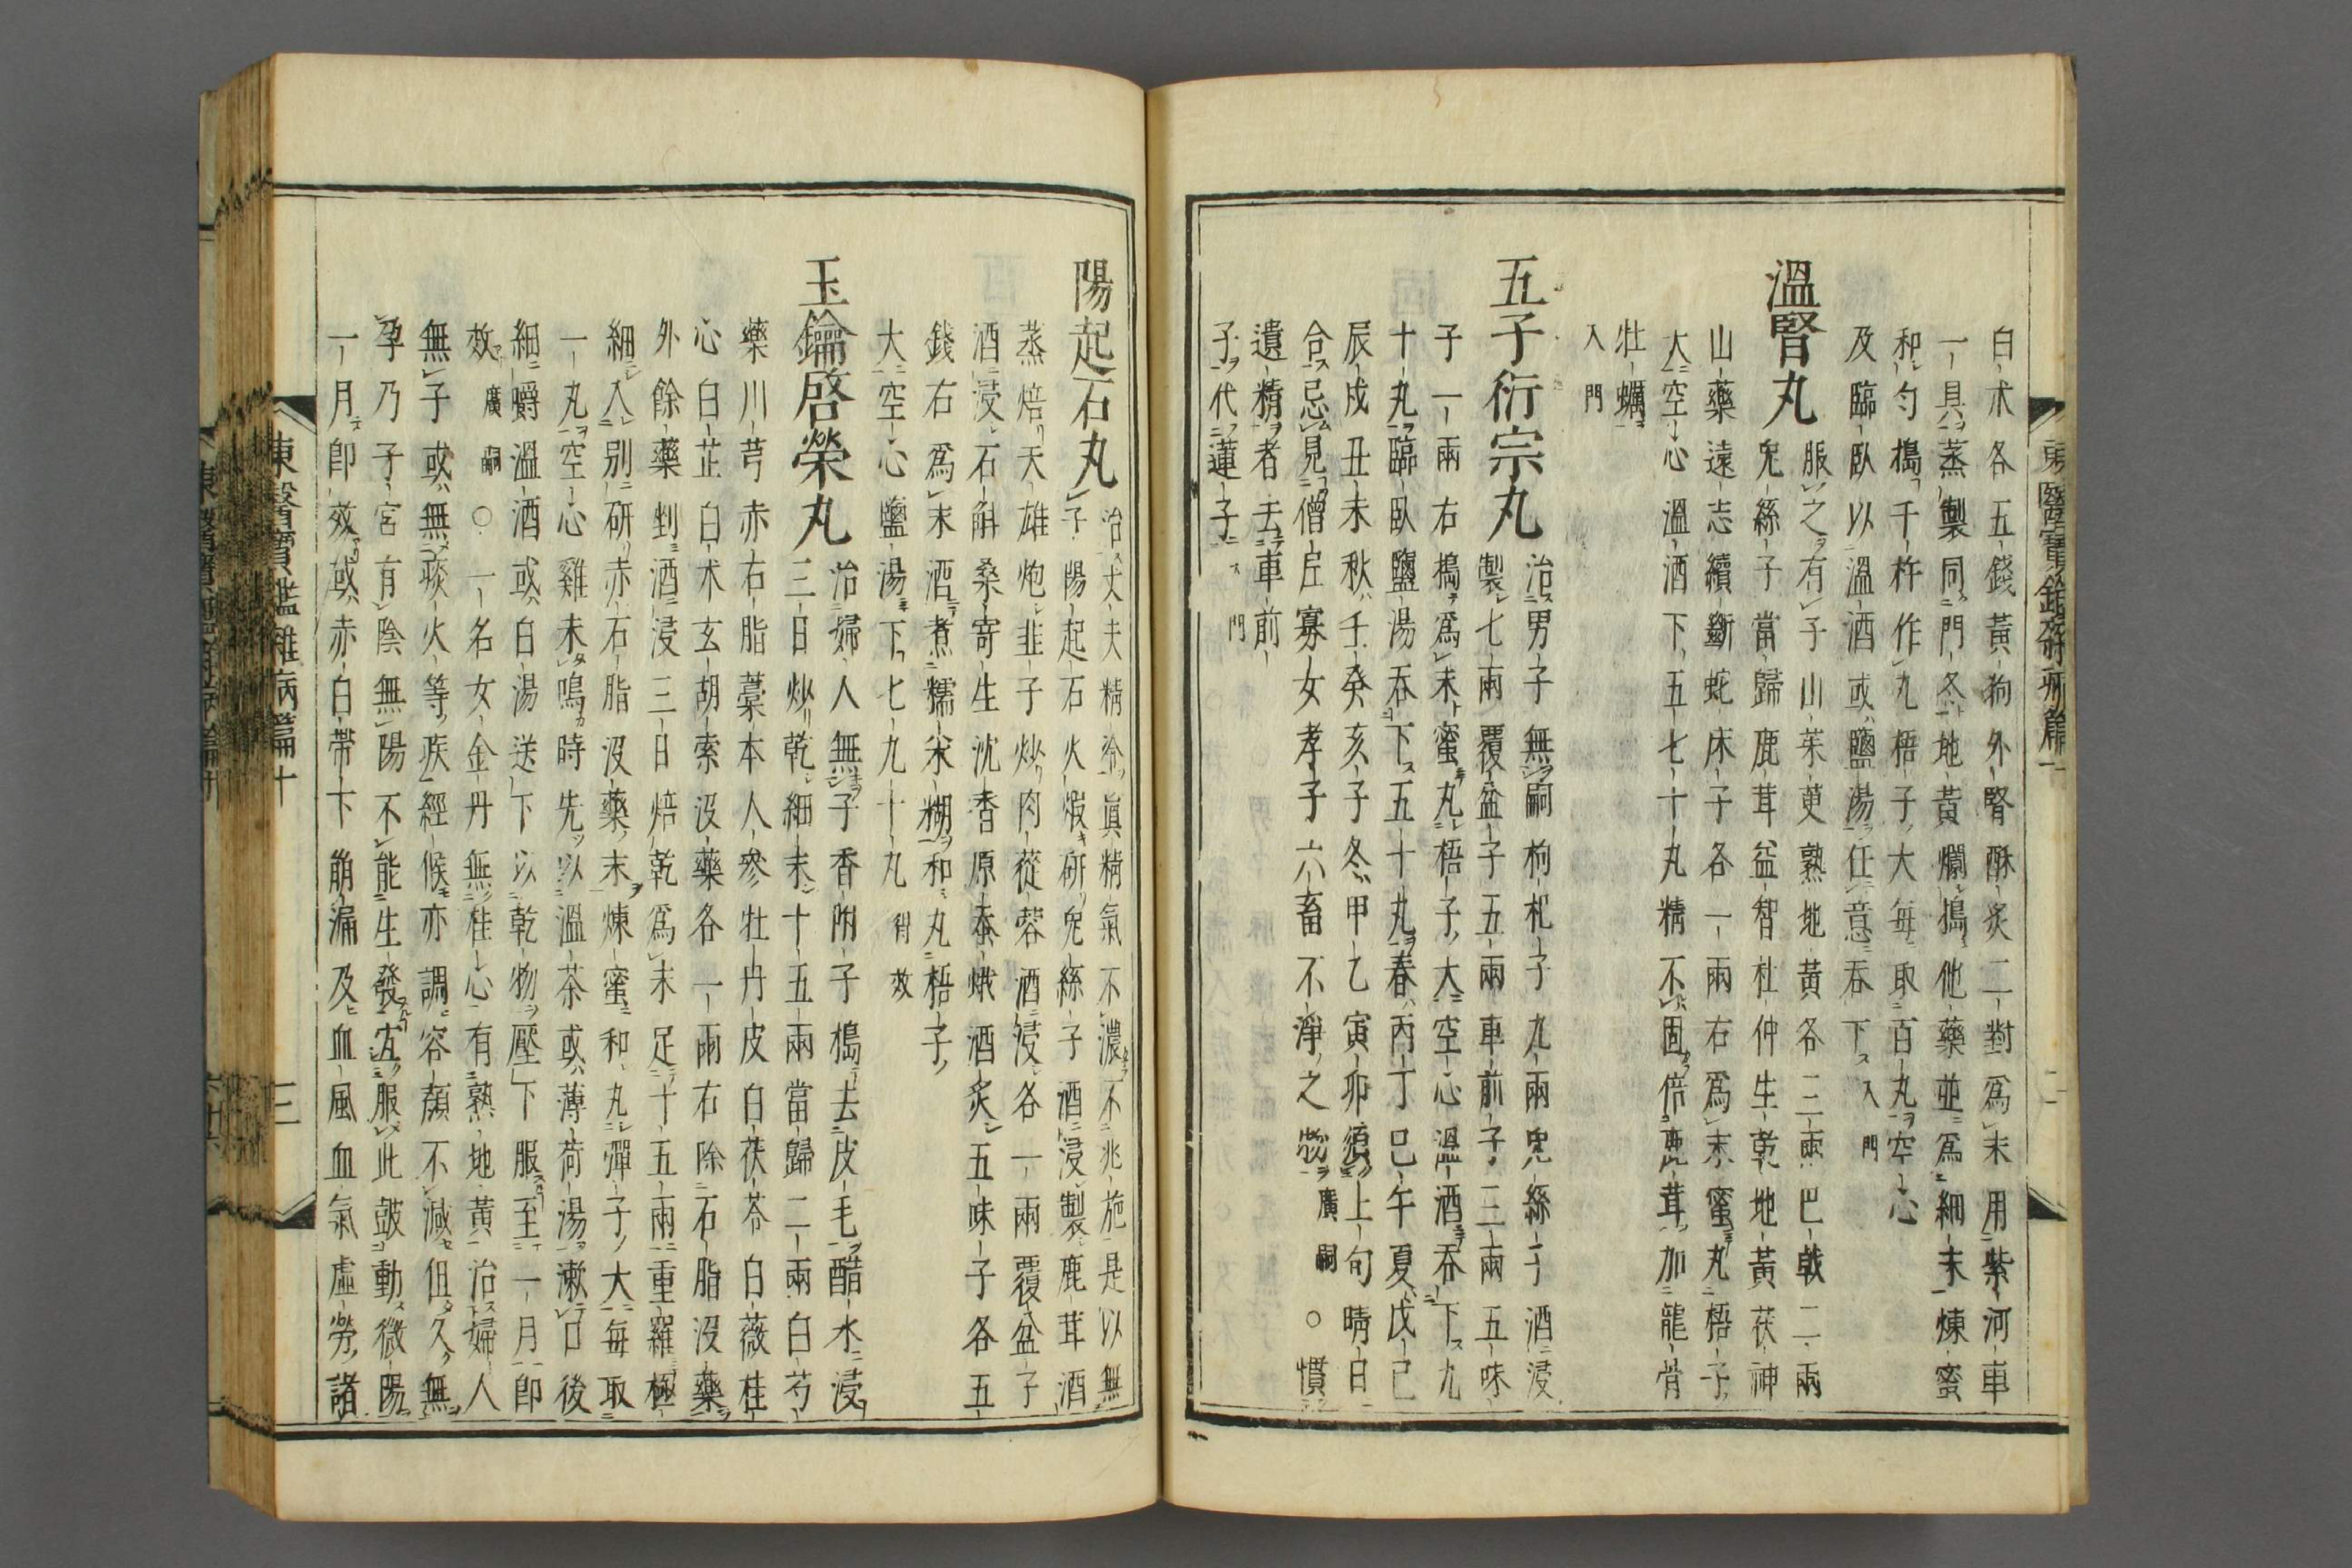 白朮各五錢黃狗外腎酥炙二對爲末用紫河車
一具蒸製同門冬地黃爛搗他藥並爲細末煉蜜
和勻搗千杵作丸梧子大每取百丸空心
及臨臥以溫酒或鹽湯任意吞下入門
溫腎丸
服之有子山茱萸熟地黃各三兩巴戟二兩
兔絲子當歸鹿茸益智杜仲生乾地黃茯神
山藥遠志續斷蛇床子各一兩右爲末蜜丸梧子
大空心溫酒下五七十丸精不固倍鹿茸加龍骨
牡蠣
入門
五子衍宗丸
治男子無嗣枸杞子九兩兔絲子酒浸
製七兩覆盆子五兩車前子三兩五味
子一兩右搗爲末蜜丸梧子大空心溫酒吞下九
十丸臨臥鹽湯吞下五十丸春丙丁巳午夏戊己
辰戌丑未秋壬癸亥子冬甲乙寅卯須上旬晴日
合忌見僧尼寡女孝子六畜不淨之物廣嗣○慣
遺精者去車前
子代蓮子門
東醫寶鑑雜病篇十
二
陽起石丸
治丈夫精冷眞精氣不濃不兆施是以無
子陽起石火煅研兔絲子酒浸製鹿茸酒
蒸焙天雄炮韭子炒肉蓯蓉酒浸各一兩覆盆子
酒浸石斛桑寄生沈香原蚕蛾酒炙五味子各五
錢右爲末酒煮糯米糊和丸梧子
大空心鹽湯下七九十丸得效
玉鑰啓榮丸
治婦人無子香附子搗去皮毛醋水浸
三日炒乾細末十五兩當歸二兩白芍
藥川芎赤石脂藁本人參牡丹皮白茯苓白薇桂
心白芷白朮玄胡索沒藥各一兩右除石脂沒藥
外餘藥剉酒浸三日焙乾爲末足十五兩重羅極
細入別研赤石脂沒藥末煉蜜和丸彈子大每取
一丸空心雞未鳴時先以溫茶或薄荷湯漱口後
細嚼溫酒或白湯送下以乾物壓下服至一月卽
效廣嗣○一名女金丹無桂心有熟地黃治婦人
無子或無痰火等疾經候亦調容顔不減但久無
孕乃子宮有陰無陽不能生發宜服此鼓動微陽
一月卽效或赤白帶下崩漏及血風血氣虛勞諸
東醫寶鑑雜病篇十
三